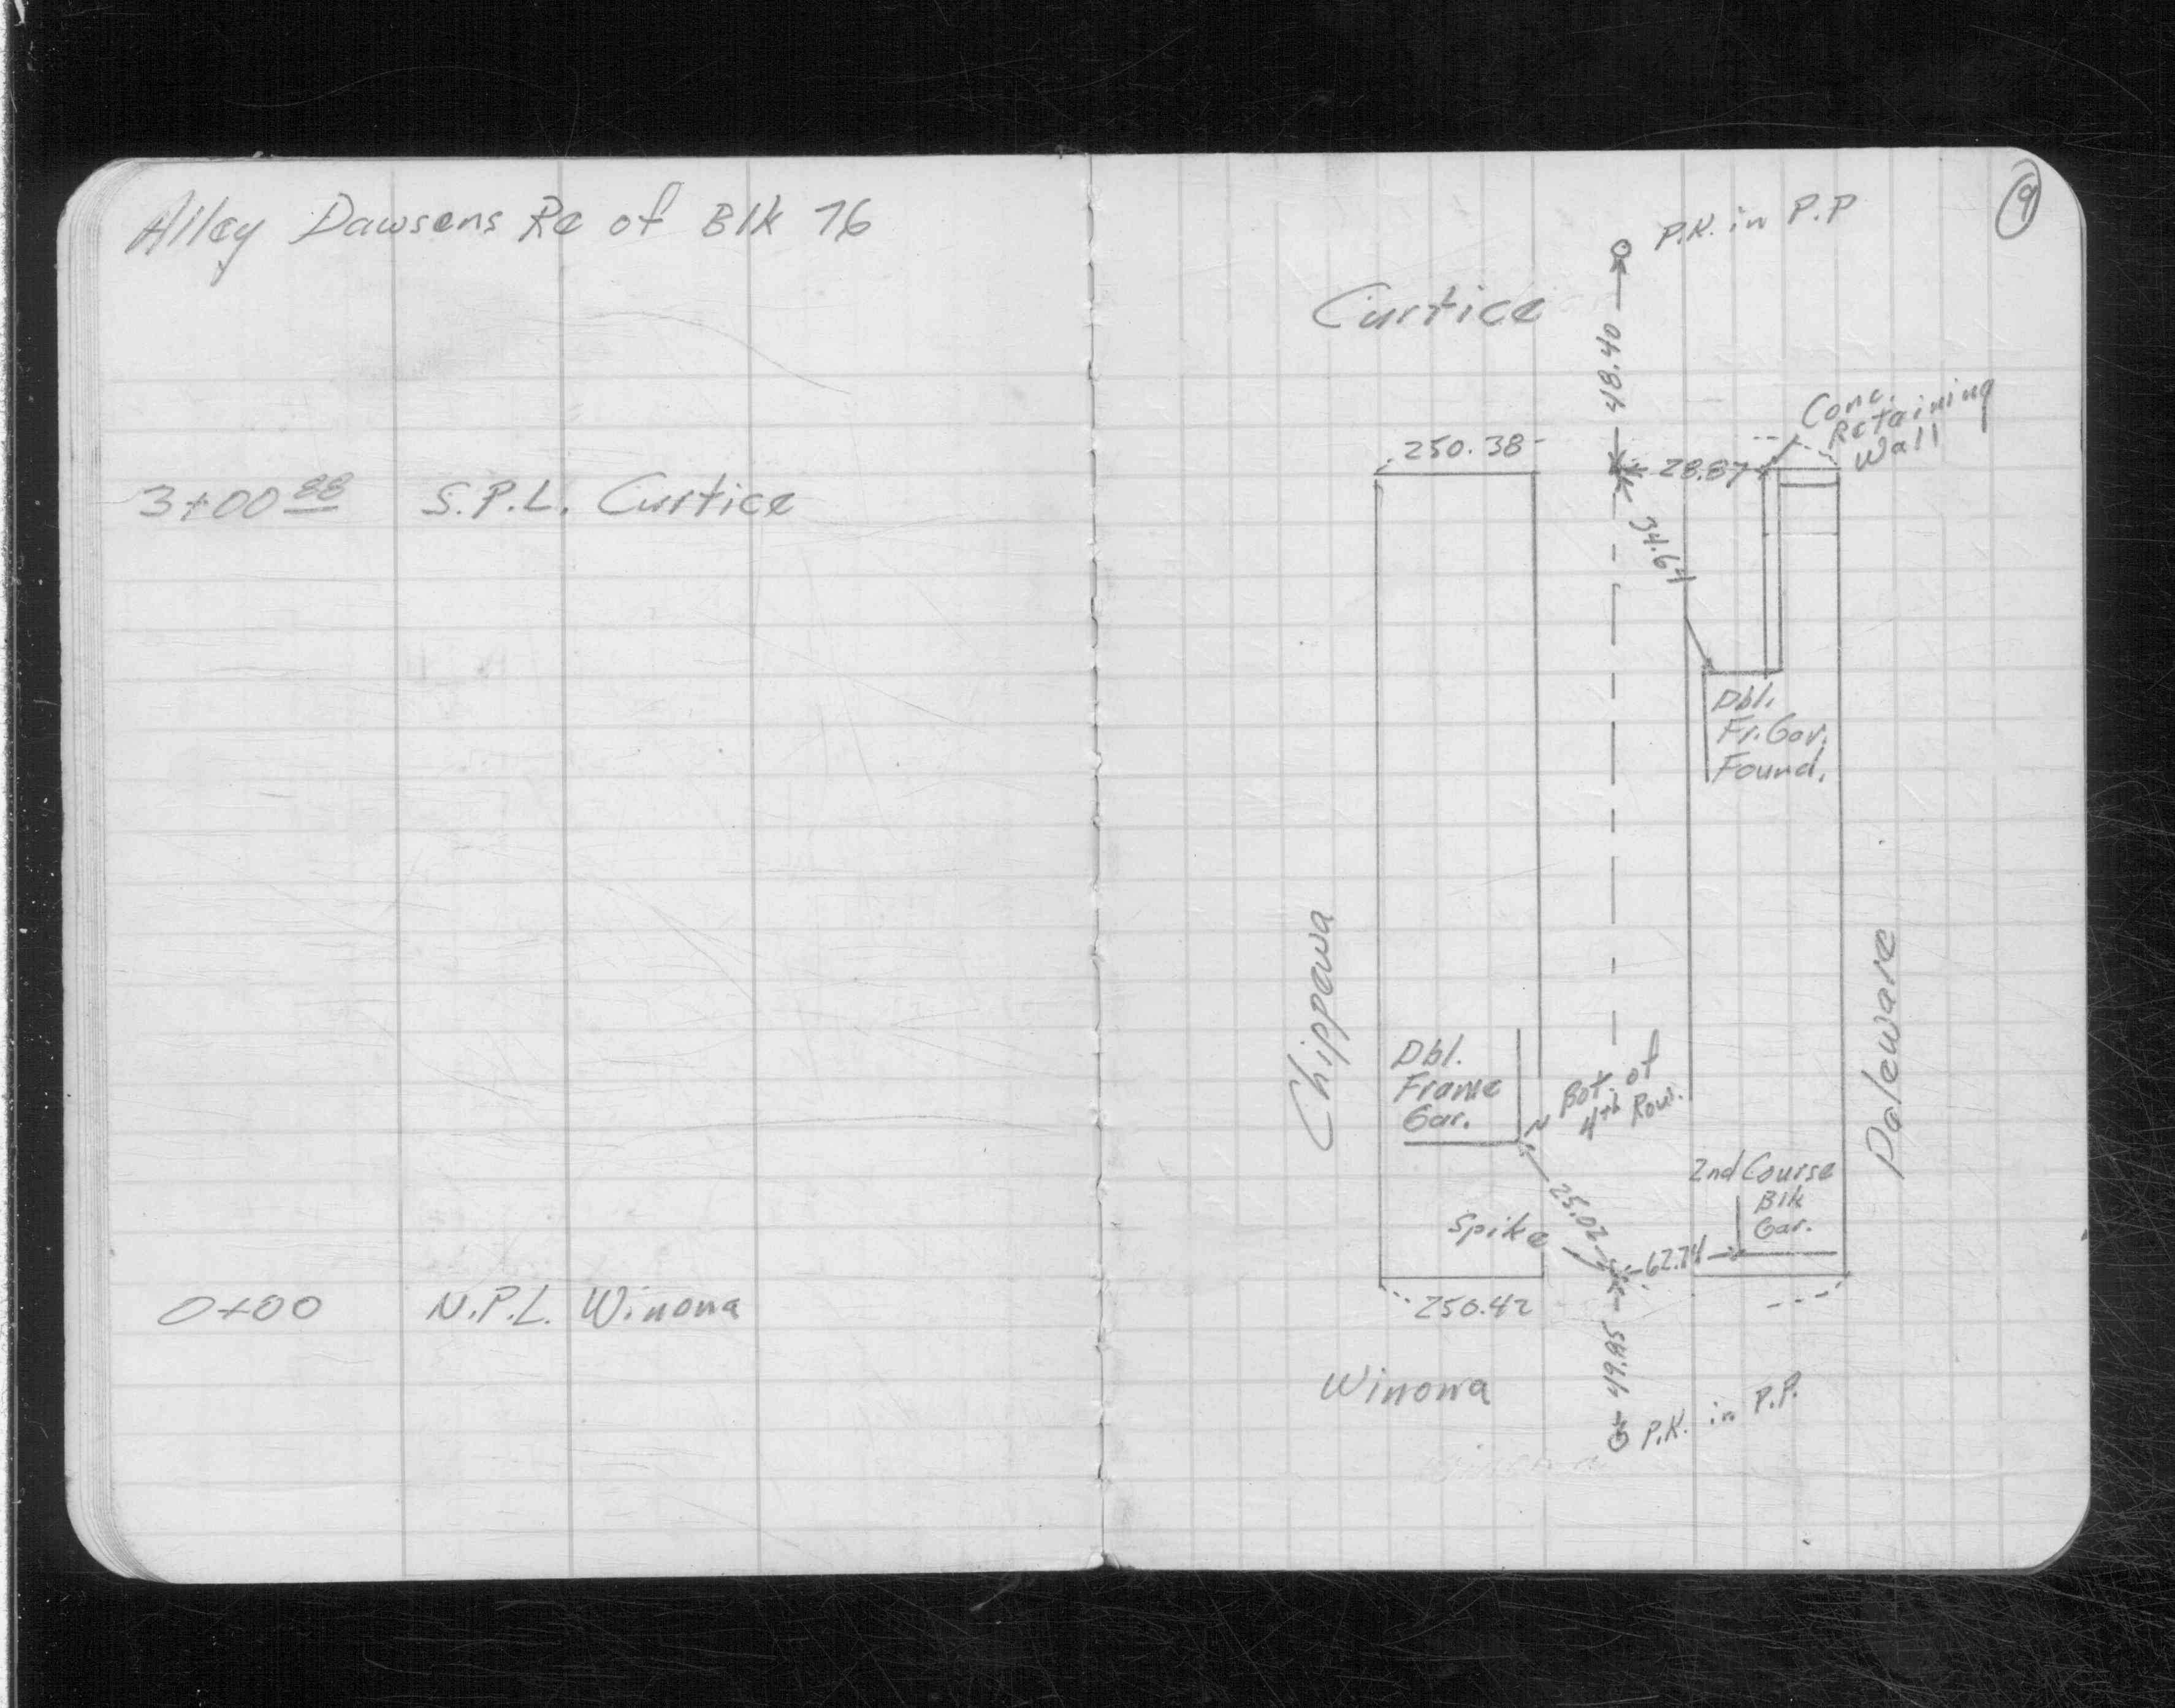 Alley Dawsens Re of Blk 76
3+00 88 S.P.L. Curtice
0+00 N.P.L. Winona
9
P.K. in P.P
Curtice
48.40
Conc.
Retaining
Wall
250.38
28.87
34.64
Dbl.
Fr. Gar.
Found.
Chippewa
Daleware
Dbl.
Frame
Gar.
Bot. of
4th Row.
2nd Course
Blk
Gar.
25.02
Spike
62.74
250.42
49.85
Winona
P.K. in P.P.